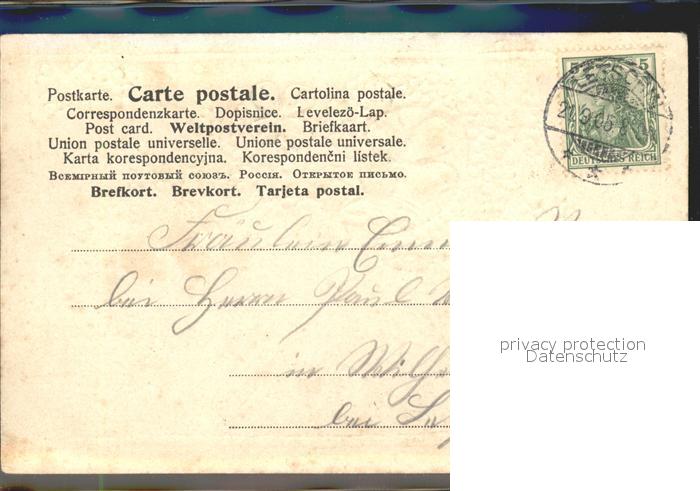 Postkarte. Carte postale. Cartolina postale.
Correspondenzkarte. Dopisnice. Levelező-Lap.
Post card. Weltpostverein. Briefkaart.
Union postale universelle. Unione postale universale.
Karta korespondencyjna. Korespondenční lístek.
Всемірный почтовый союзъ. Россія. Открытое письмо.
Brefkort. Brevkort. Tarjeta postal.
5
DEUTSCHES REICH
Fräulein
bei Herrn Paul
in
bei
privacy protection
Datenschutz